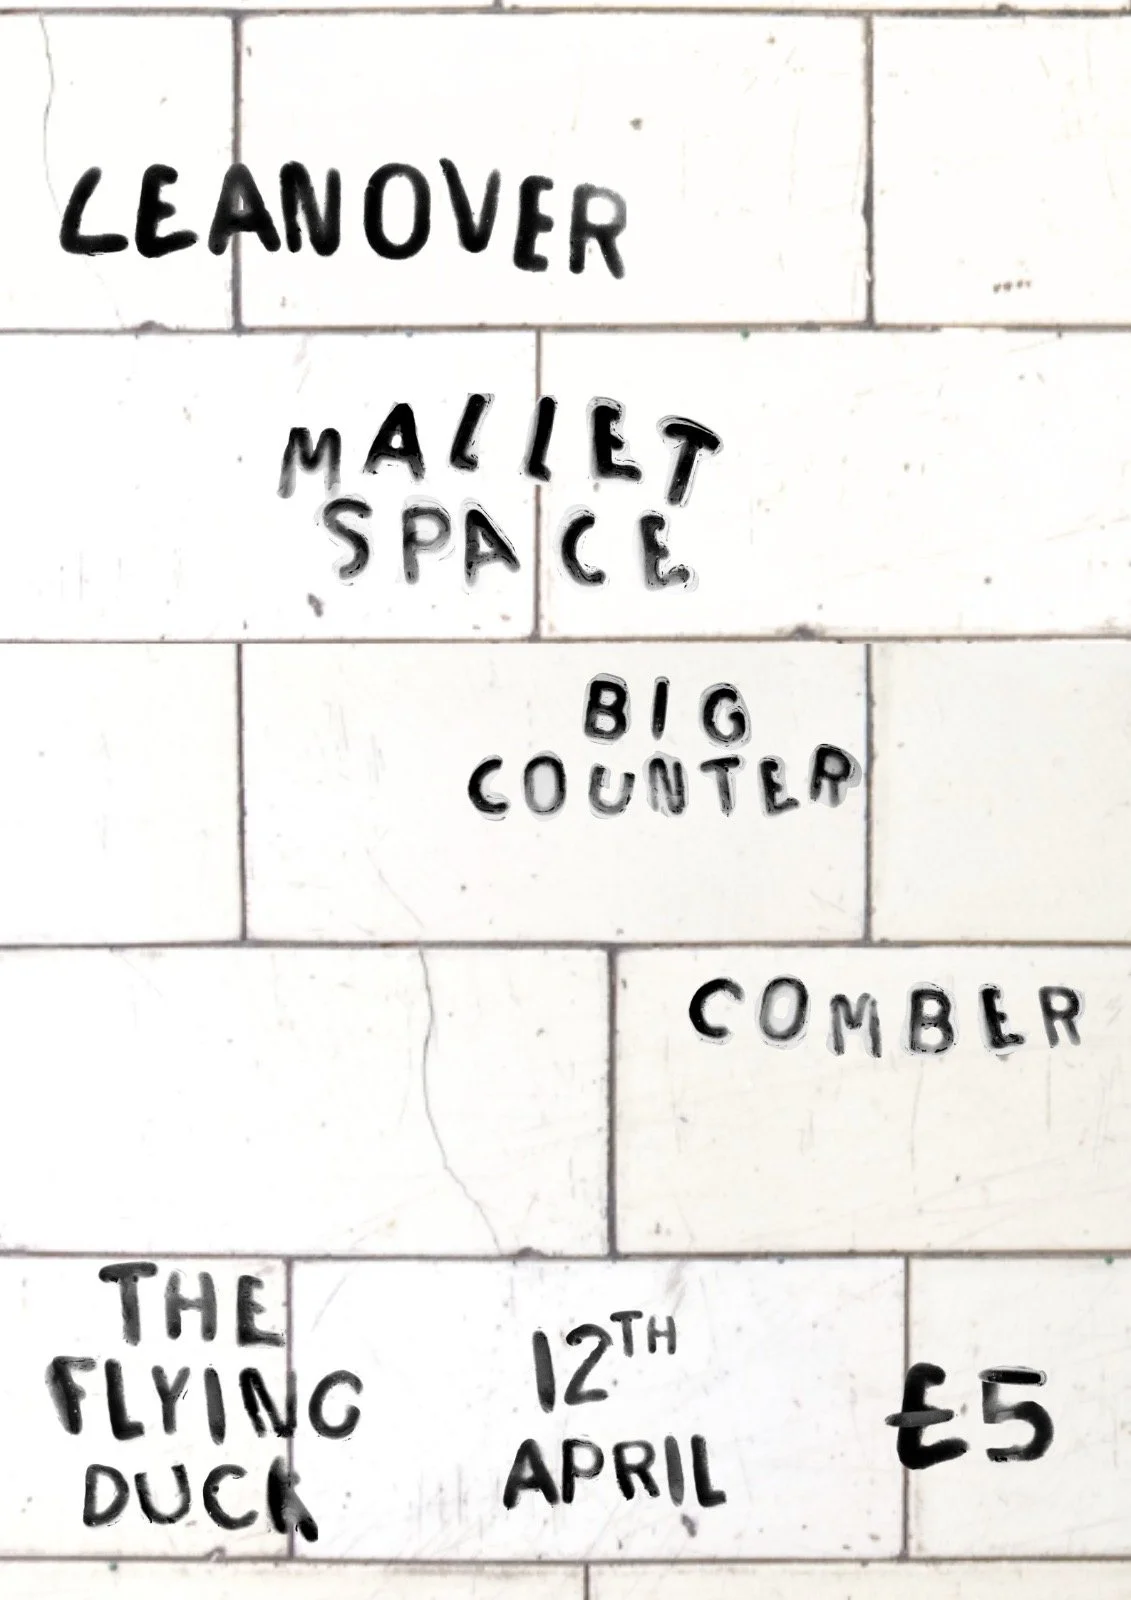 LEANOVER
MALLET
SPACE
BIG
COUNTER
COMBER
THE
FLYING
DUCK
12TH
APRIL
£5